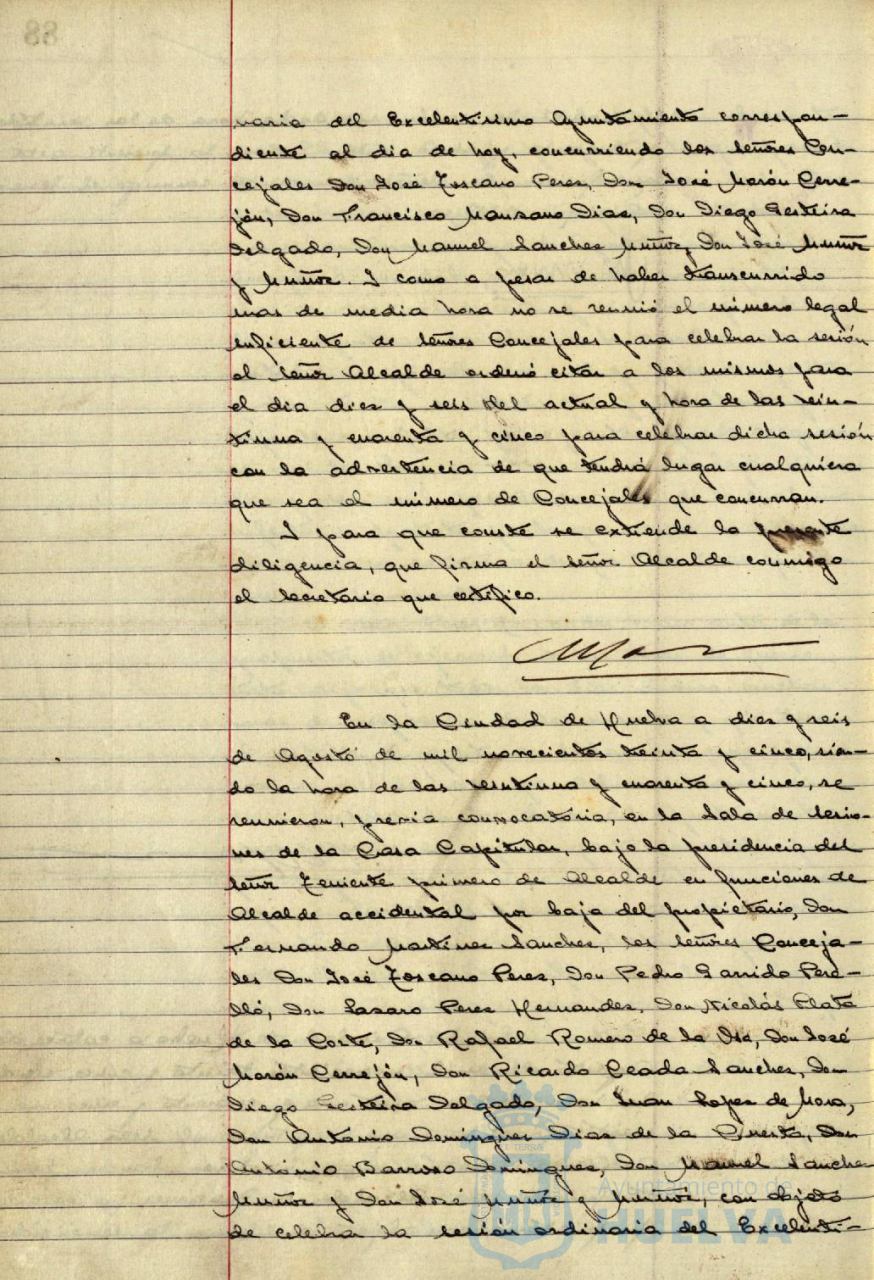 88
naria del Excelentísimo Ayuntamiento correspon-
diente al día de hoy, concurriendo los señores Con-
cejales Don José Toscano Perez, Don José Marón Cerre-
jón, Don Francisco Manzano Diaz, Don Diego Gesteira
Delgado, Don Manuel Sanchez Muñoz, Don José Muñoz
y Muñoz. I como a pesar de haber transcurrido
mas de media hora no se reunió el número legal
suficiente de señores Concejales para celebrar la sesión
el señor Alcalde ordenó citar a los mismos para
el día diez y seis del actual y hora de las vein-
tiuna y cuarenta y cinco para celebrar dicha sesión
con la advertencia de que tendrá lugar cualquiera
que sea el número de Concejales que concurran.
I para que conste se extiende la presente
diligencia, que firma el señor Alcalde conmigo
el Secretario que certifico.
En la Ciudad de Huelva a diez y seis
de Agosto de mil novecientos treinta y cinco, sien-
do la hora de las veintiuna y cuarenta y cinco, se
reunieron, previa convocatoria, en la Sala de Sesio-
nes de la Casa Capitular, bajo la presidencia del
señor Teniente primero de Alcalde en funciones de
Alcalde accidental por baja del propietario, Don
Fernando Martinez Sanchez, los señores Conceja-
les Don José Toscano Perez, Don Pedro Garrido Pere-
lló, Don Lazaro Perez Hernandez, Don Nicolás Plata
de la Corte, Don Rafael Romero de la Osa, Don José
Marón Cerrejón, Don Ricardo Ceada Sanchez, Don
Diego Gesteira Delgado, Don Juan Lopez de Mora,
Don António Dominguez Diaz de la Cuesta, Don
António Barroso Dominguez, Don Manuel Sanchez
Muñoz y Don José Muñoz y Muñoz, con objeto
de celebrar la sesión ordinaria del Excelentí-
Ayuntamiento de
HUELVA